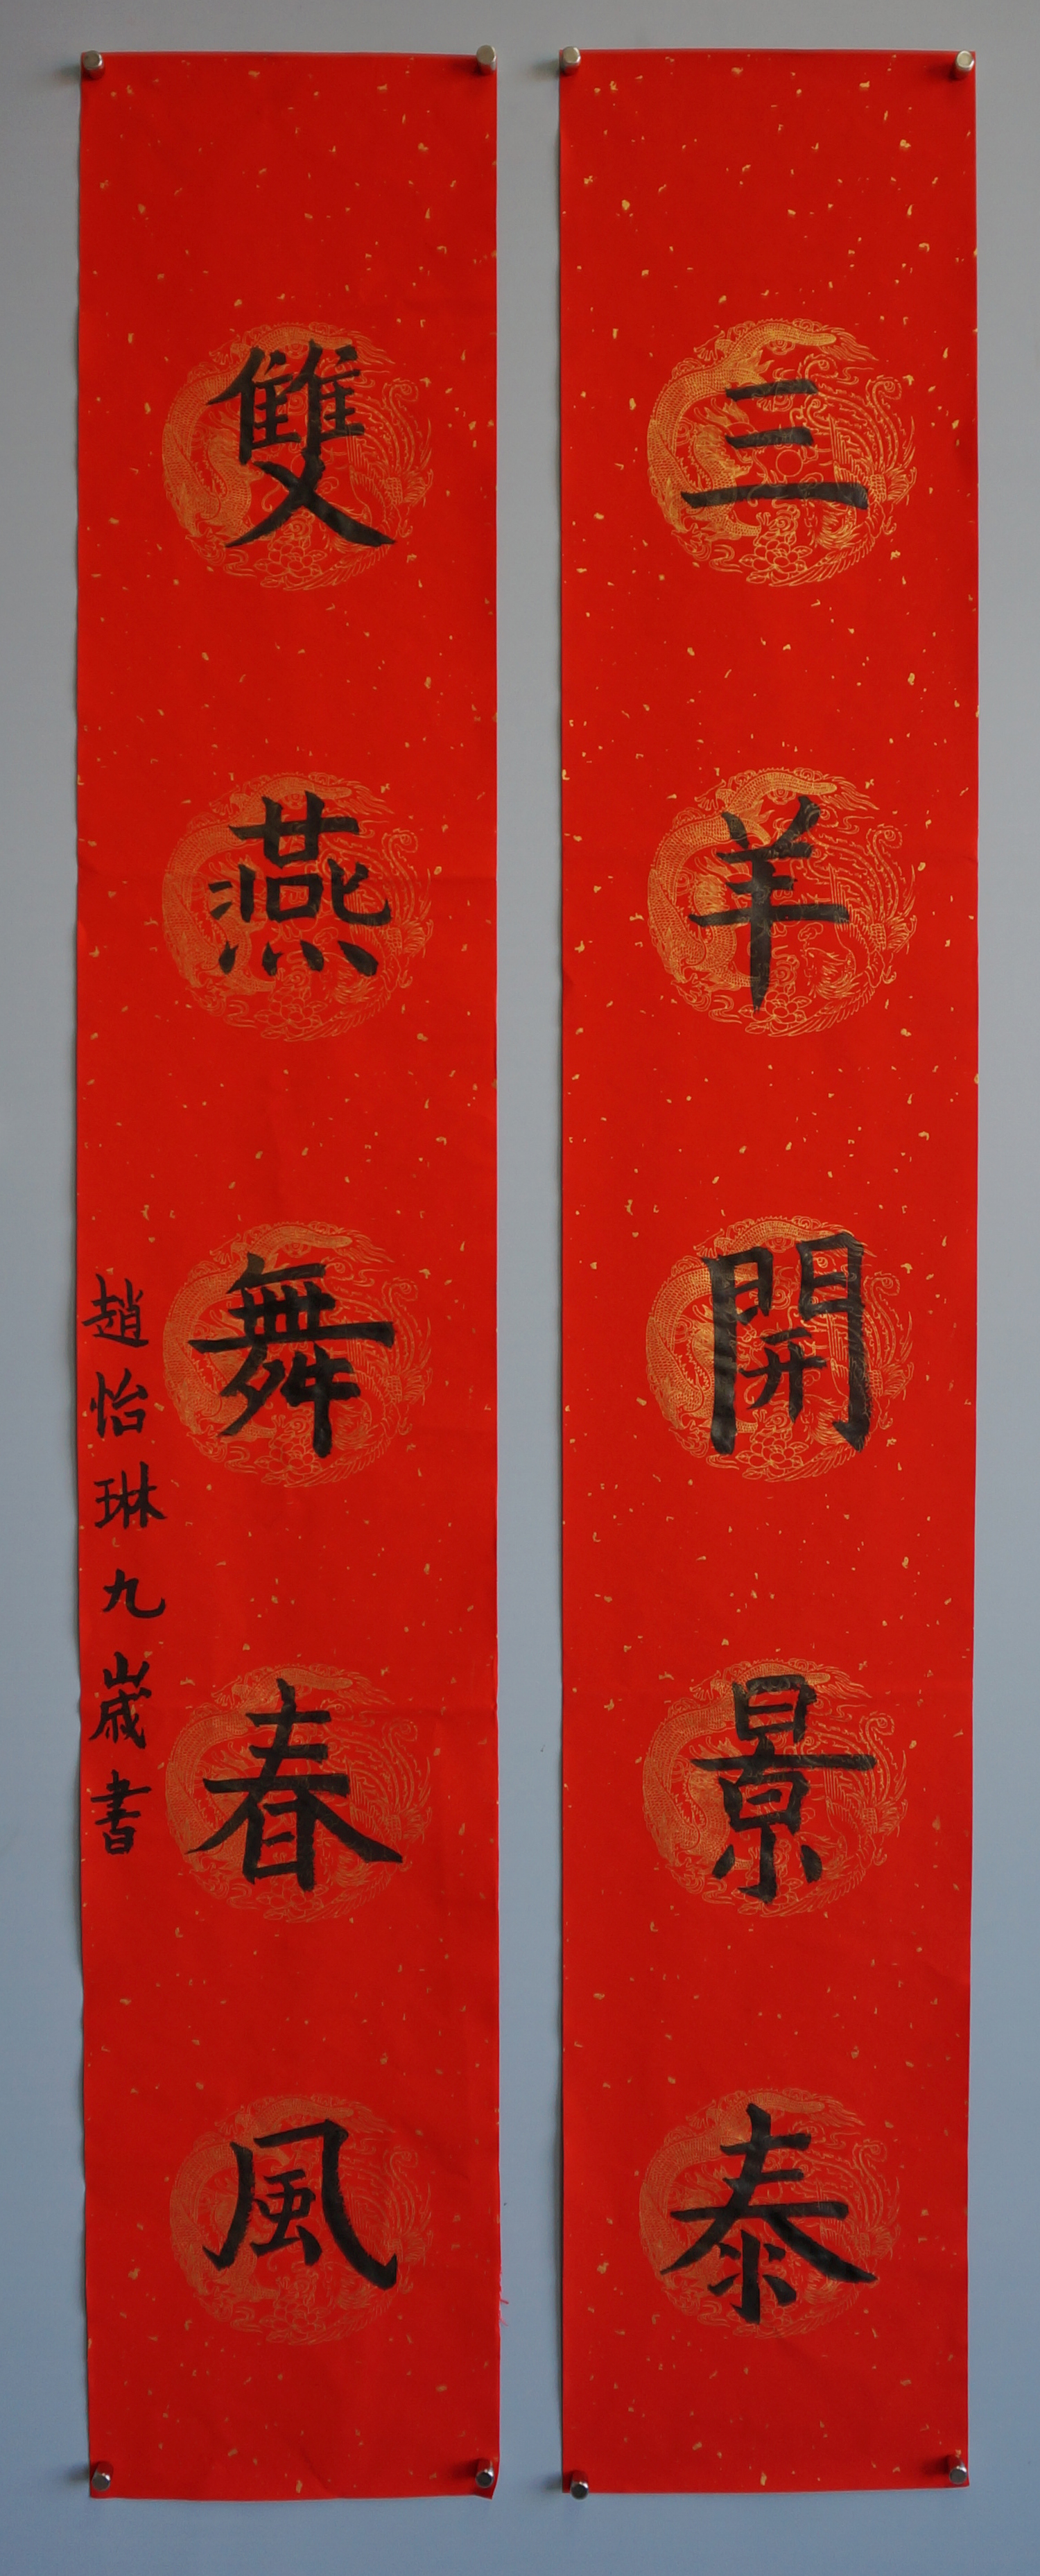 三羊開景泰
雙燕舞春風
趙怡琳九歲書